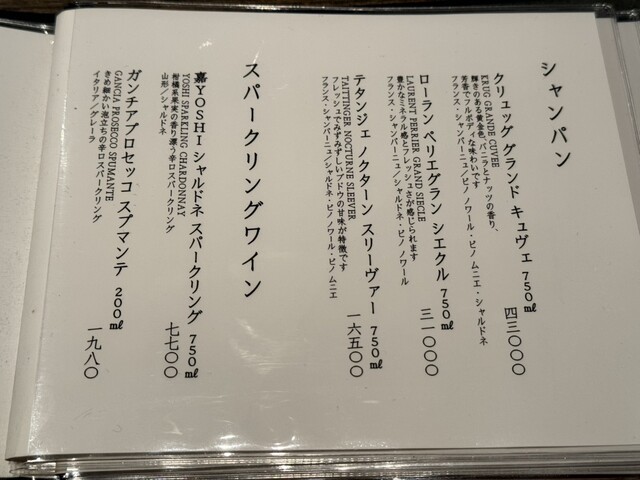 シャンパン
クリュッグ グランド キュヴェ 750㎖ 四三〇〇〇
KRUG GRANDE CUVEE
輝きのある黄金色、バニラとナッツの香り、
芳香でフルボディな味わいです
フランス・シャンパーニュ／ピノ ノワール・ピノ ムニエ・シャルドネ
ローラン ペリエグラン シエクル 750㎖ 三一〇〇〇
LAURENT PERRIER GRAND SIECLE
豊かなミネラル感とフレッシュさが感じられます
フランス・シャンパーニュ／シャルドネ・ピノ ノワール
テタンジェ ノクターン スリーヴァー 750㎖ 一六五〇〇
TAITTINGER NOCTURNE SLEEVER
フレッシュでみずみずしいブドウの甘味が特徴です
フランス・シャンパーニュ／シャルドネ・ピノ ノワール・ピノ ムニエ
スパークリングワイン
嘉YOSHI シャルドネ スパークリング 750㎖ 七七〇〇
YOSHI SPARKLING CHARDONNAY
柑橘系果実の香り漂う辛口スパークリング
山形／シャルドネ
ガンチアプロセッコ スプマンテ 200㎖ 一九八〇
GANCIA PROSECCO SPUMANTE
きめ細かい泡立ちの辛口スパークリング
イタリア／グレーラ